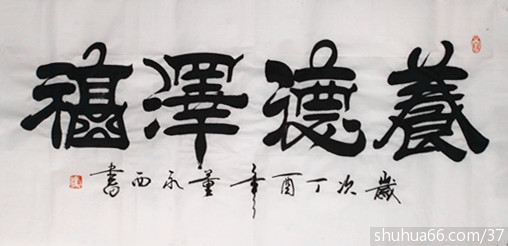 養德澤福
歲次丁酉年董永西書
shuhua66.com/37